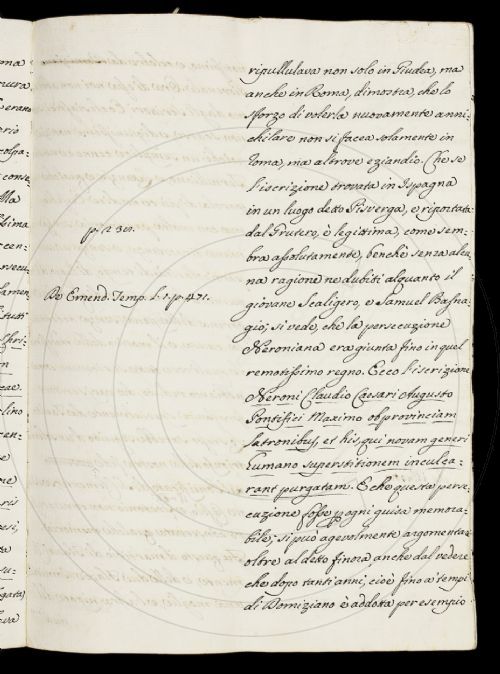 ripullulava non solo in Giudea, ma
anche in Roma, dimostra, che lo
sforzo di volerla nuovamente anni=
chilare non si facea solamente in
Roma, ma altrove eziandio. Che se
l'iscrizione trovata in Ispagna
in un luogo detto Pisverga, e riportata
p. 238.
dal Grutero, è legittima, come sem=
bra assolutamente, benchè senza alcu=
na ragione ne dubiti alquanto il
De Emend. Temp. l. 5. p. 471.
giovane Scaligero, e Samuel Basna=
gio, si vede, che la persecuzione
Neroniana era giunta fino in quel
remotissimo regno. Ecco l'iscrizione
Neroni Claudio Caesari Augusto
Pontifici Maximo ob provinciam
latronibus, et his, qui novam generi
humano superstitionem inculca=
rant purgatam. E che questa perse=
cuzione fosse in ogni guisa memora=
bile, si può agevolmente argomentar
oltre al detto finora, anche dal vedere
che dopo tanti anni, cioè fino a' tempi
di Domiziano è addotta per esempio